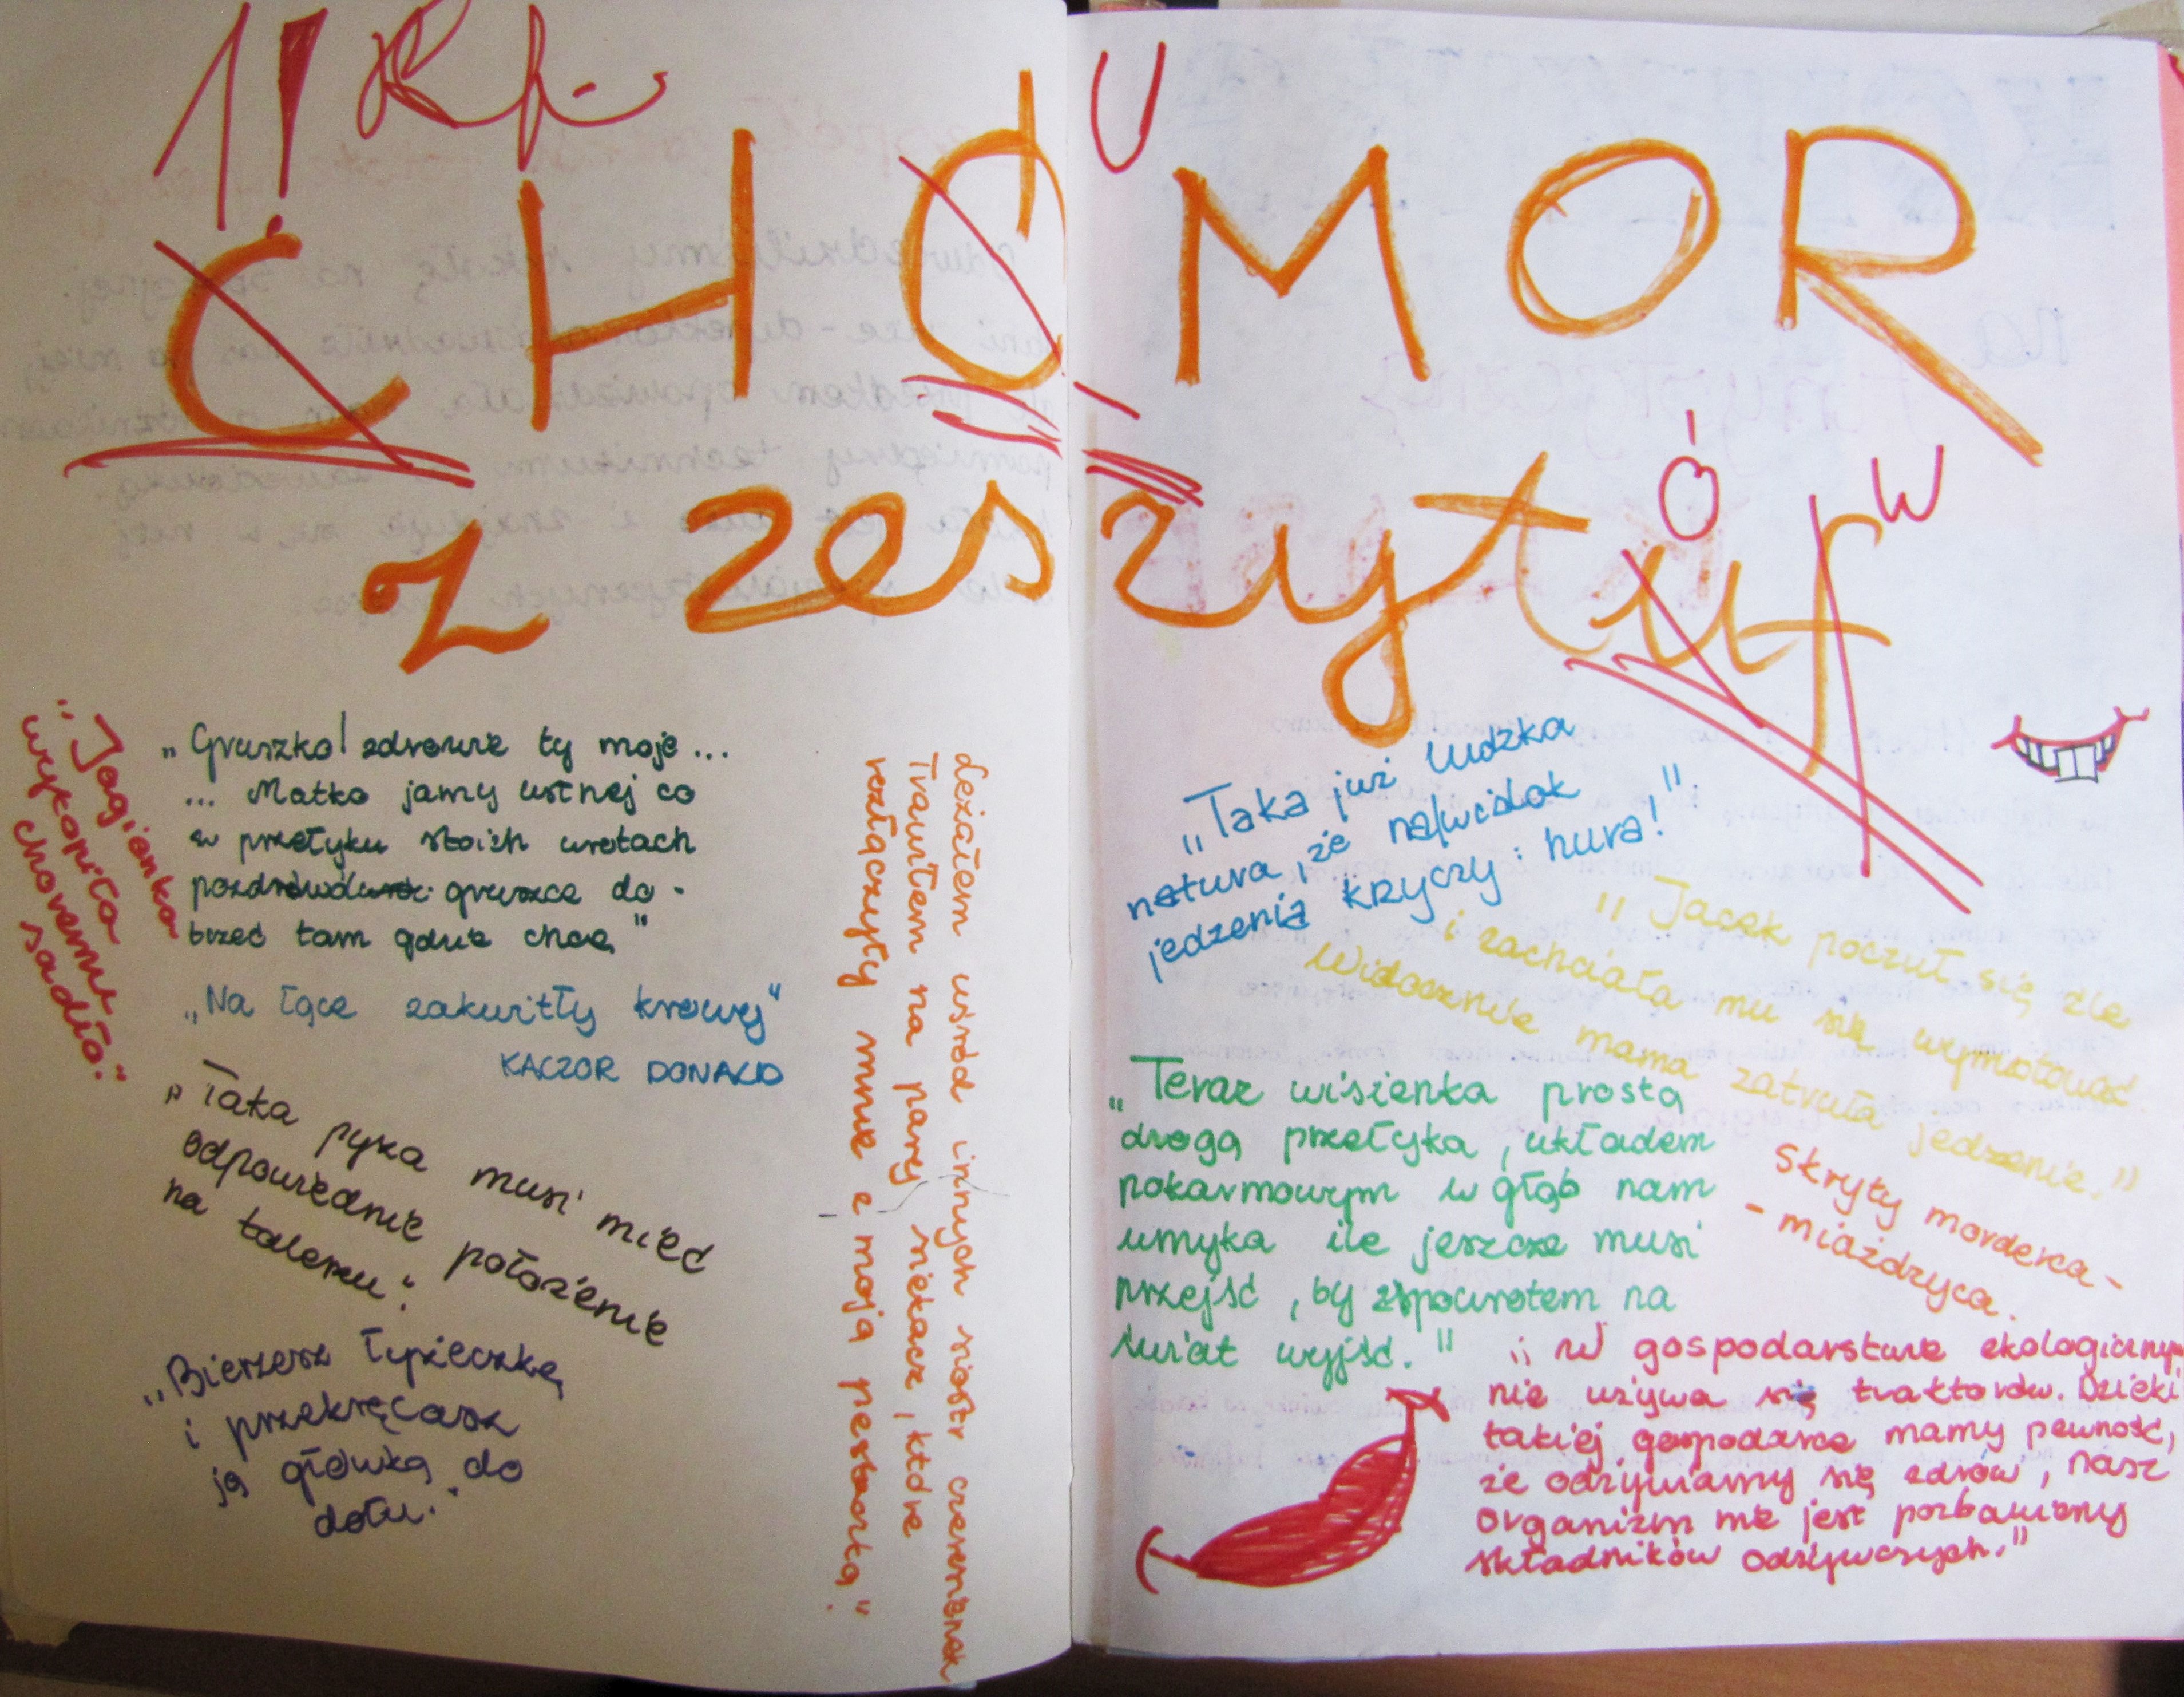 1!
CHÓMOR
U
z zeszytuf
ó w
„Jagienka
wykopiła
choremu
sadło.“
„Gruszko! zdrowie ty moje...
... Matko jamy ustnej co
w przełyku stoisz wrotach
gruszce do-
brzeć tam gdzie chcę"
„Na łące zakwitły krowy"
KACZOR DONALD
„Taka pyza musi mieć
odpowiednie położenie
na talerzu".
„Bierzesz łyżeczkę
i przekręcasz
ją główką do
dołu."
Leżałem wśród innych sióstr czereśniowych
Trawiłem na parę siekacz, które
rozłączyły mnie z moją pestecką".
„Taka już ludzka
natura, że na widok
jedzenia krzyczy: hura!".
„Jacek poczuł się źle
i zachciało mu się wymiotować
Widocznie mama zatruła jedzenie."
„Teraz wisienka prostą
drogą przełyka, układem
pokarmowym w głąb nam
umyka ile jeszcze musi
przejść, by zpowrotem na
świat wyjść."
Skryty morderca -
- miażdżyca.
„W gospodarstwie ekologicznym
nie używa się traktorów. Dzięki
takiej gospodarce mamy pewność,
że odżywiamy się zdrów, nasz
organizm nie jest pozbawiony
składników odżywczych."